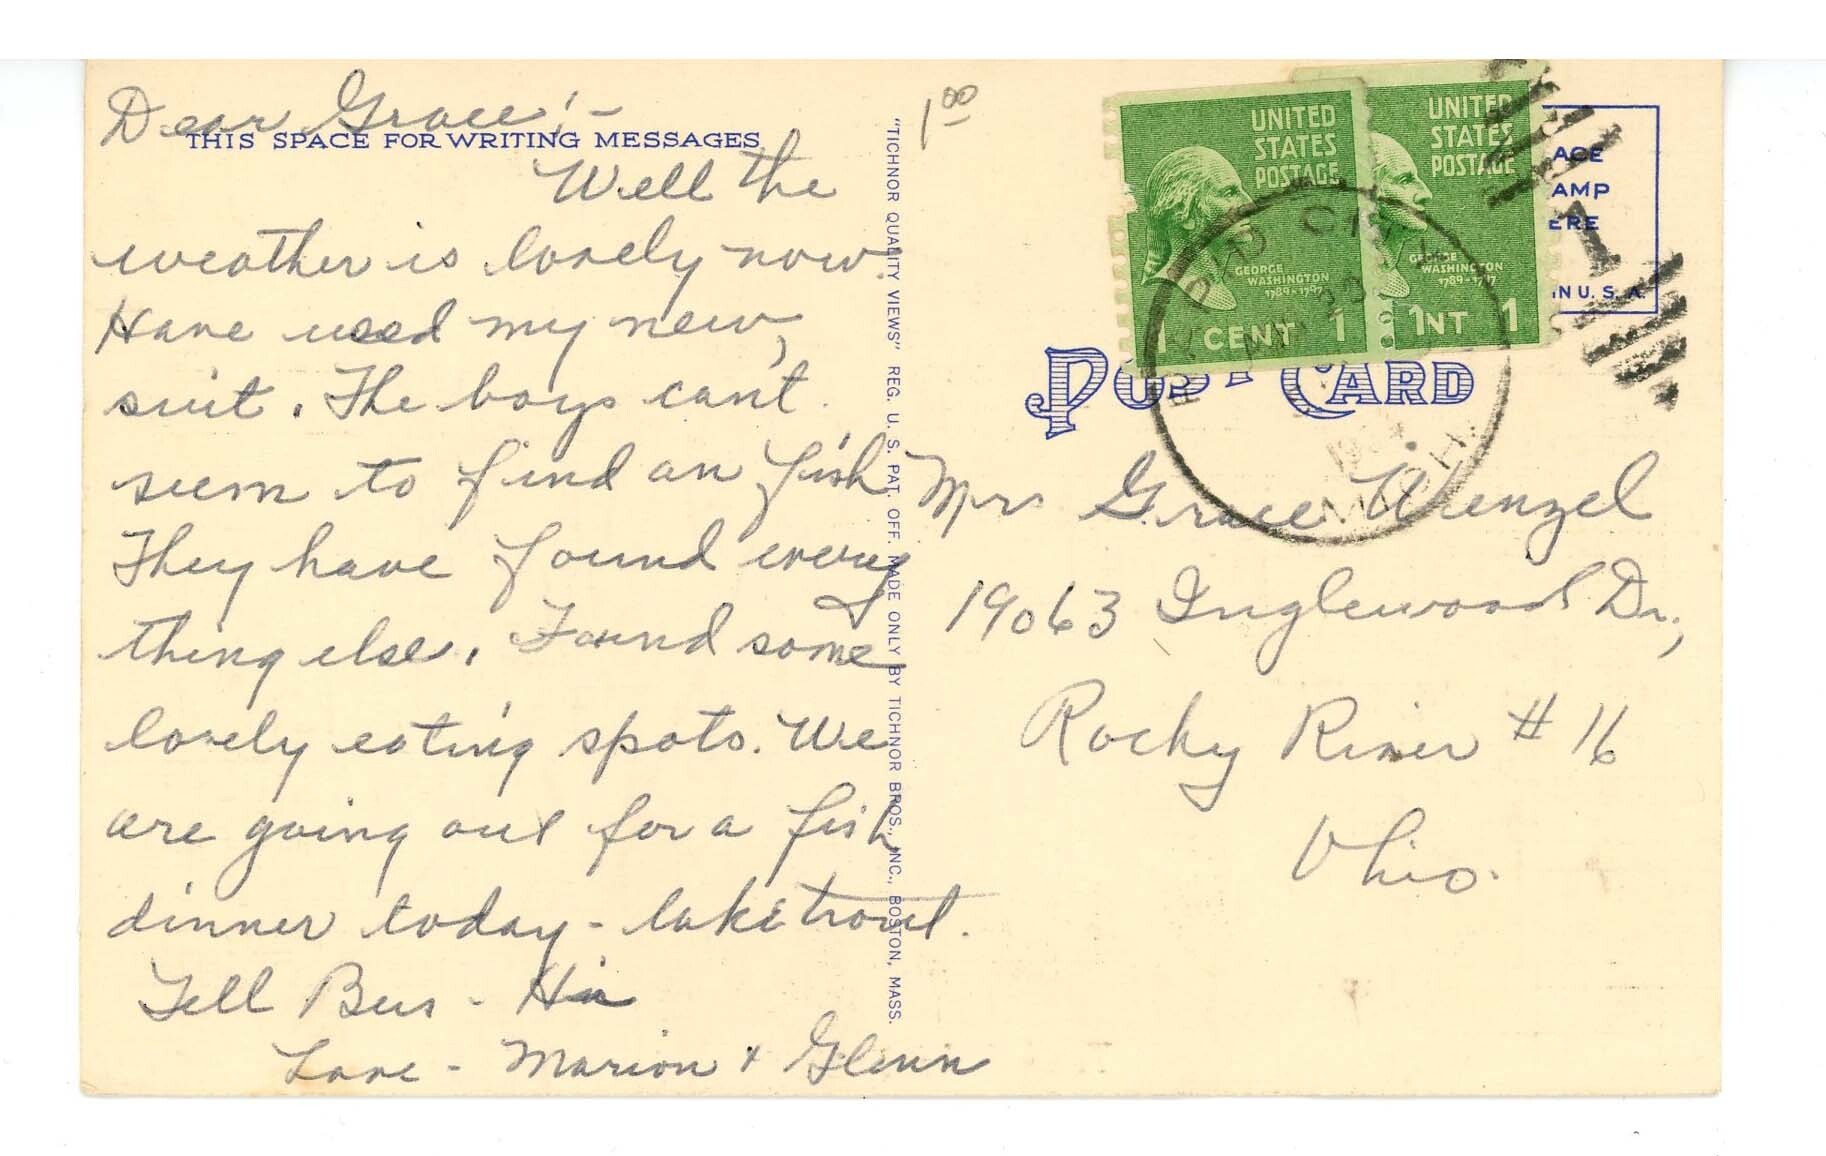 Dear Grace:-
THIS SPACE FOR WRITING MESSAGES
Well the
weather is lovely now.
Have used my new
suit. The boys can't
seem to find an fish
They have found every
thing else. Found some
lovely eating spots. We
are going out for a fish
dinner today - lake trout.
Tell Bus - Hi
Love - Marion & Glenn
"TICHNOR QUALITY VIEWS" REG. U. S. PAT. OFF. MADE ONLY BY TICHNOR BROS., INC., BOSTON, MASS.
1.00
UNITED
STATES
POSTAGE
GEORGE
WASHINGTON
1789-1797
1 CENT 1
UNITED
STATES
POSTAGE
GEORGE
WASHINGTON
1789-1797
1NT 1
ACE
AMP
ERE
IN U. S. A.
RAPID CITY
MICH.
POST CARD
Mrs Grace Wenzel
19063 Inglewood Dr.,
Rocky River # 16
Ohio.